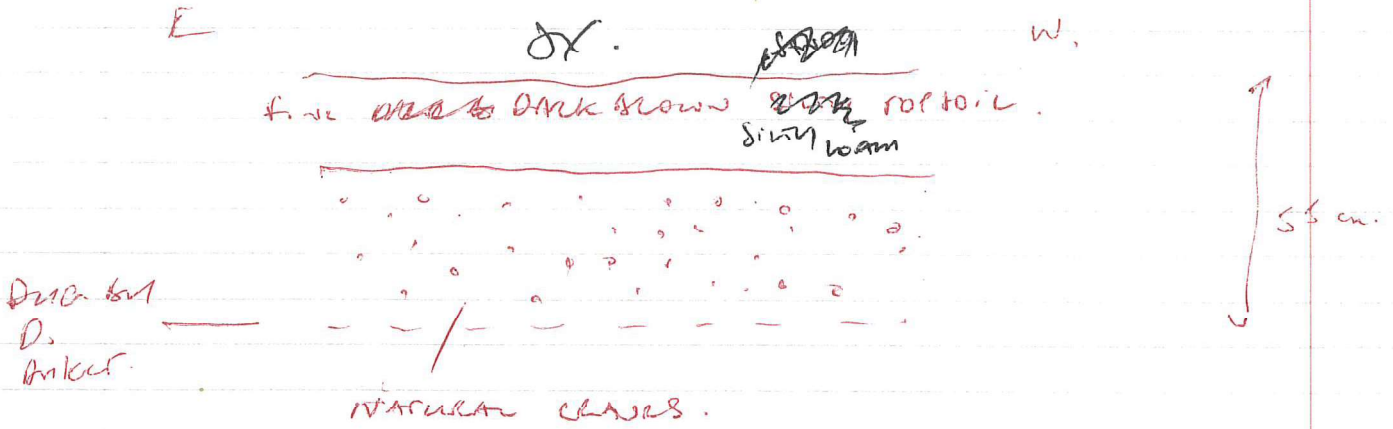 E W.
fine DARK BROWN TOPSOIL.
Silty loam
55 cm.
Dug by
D.
NATURAL GRAVELS.